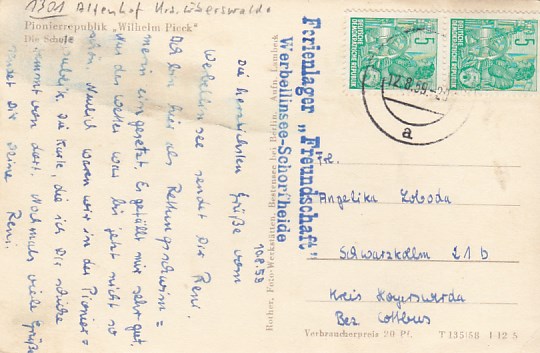 1301 Altenhof Krs. Eberswalde
Pionierrepublik „Wilhelm Pieck"
Die Schule
10.8.59
Die herzlichsten Grüße vom
Werbellinsee sendet Dir Reni.
Ich bin hier als Rettungsschwim=
merin eingesetzt. Es gefällt mir sehr gut.
Nur das Wetter war bis jetzt nicht so
schön. Neulich waren wir in der Pionier=
republik, die Karte, die ich Dir schicke
kommt von dort. Nochmals viele Grüße
sendet Dir Deine Reni.
Rother, Foto-Werkstätten, Bestensee bei Berlin, Aufn. Lambeck
Ferienlager „Freundschaft"
Werbellinsee-Schorfheide
DEUTSCHE DEMOKRATISCHE REPUBLIK
5
5
12.8.59
a
Frl.
Angelika Loboda
Schwarzkollm 21 b
Kreis Hoyerswerda
Bez. Cottbus
Verbraucherpreis 20 Pf. T 135/58 I 12 S